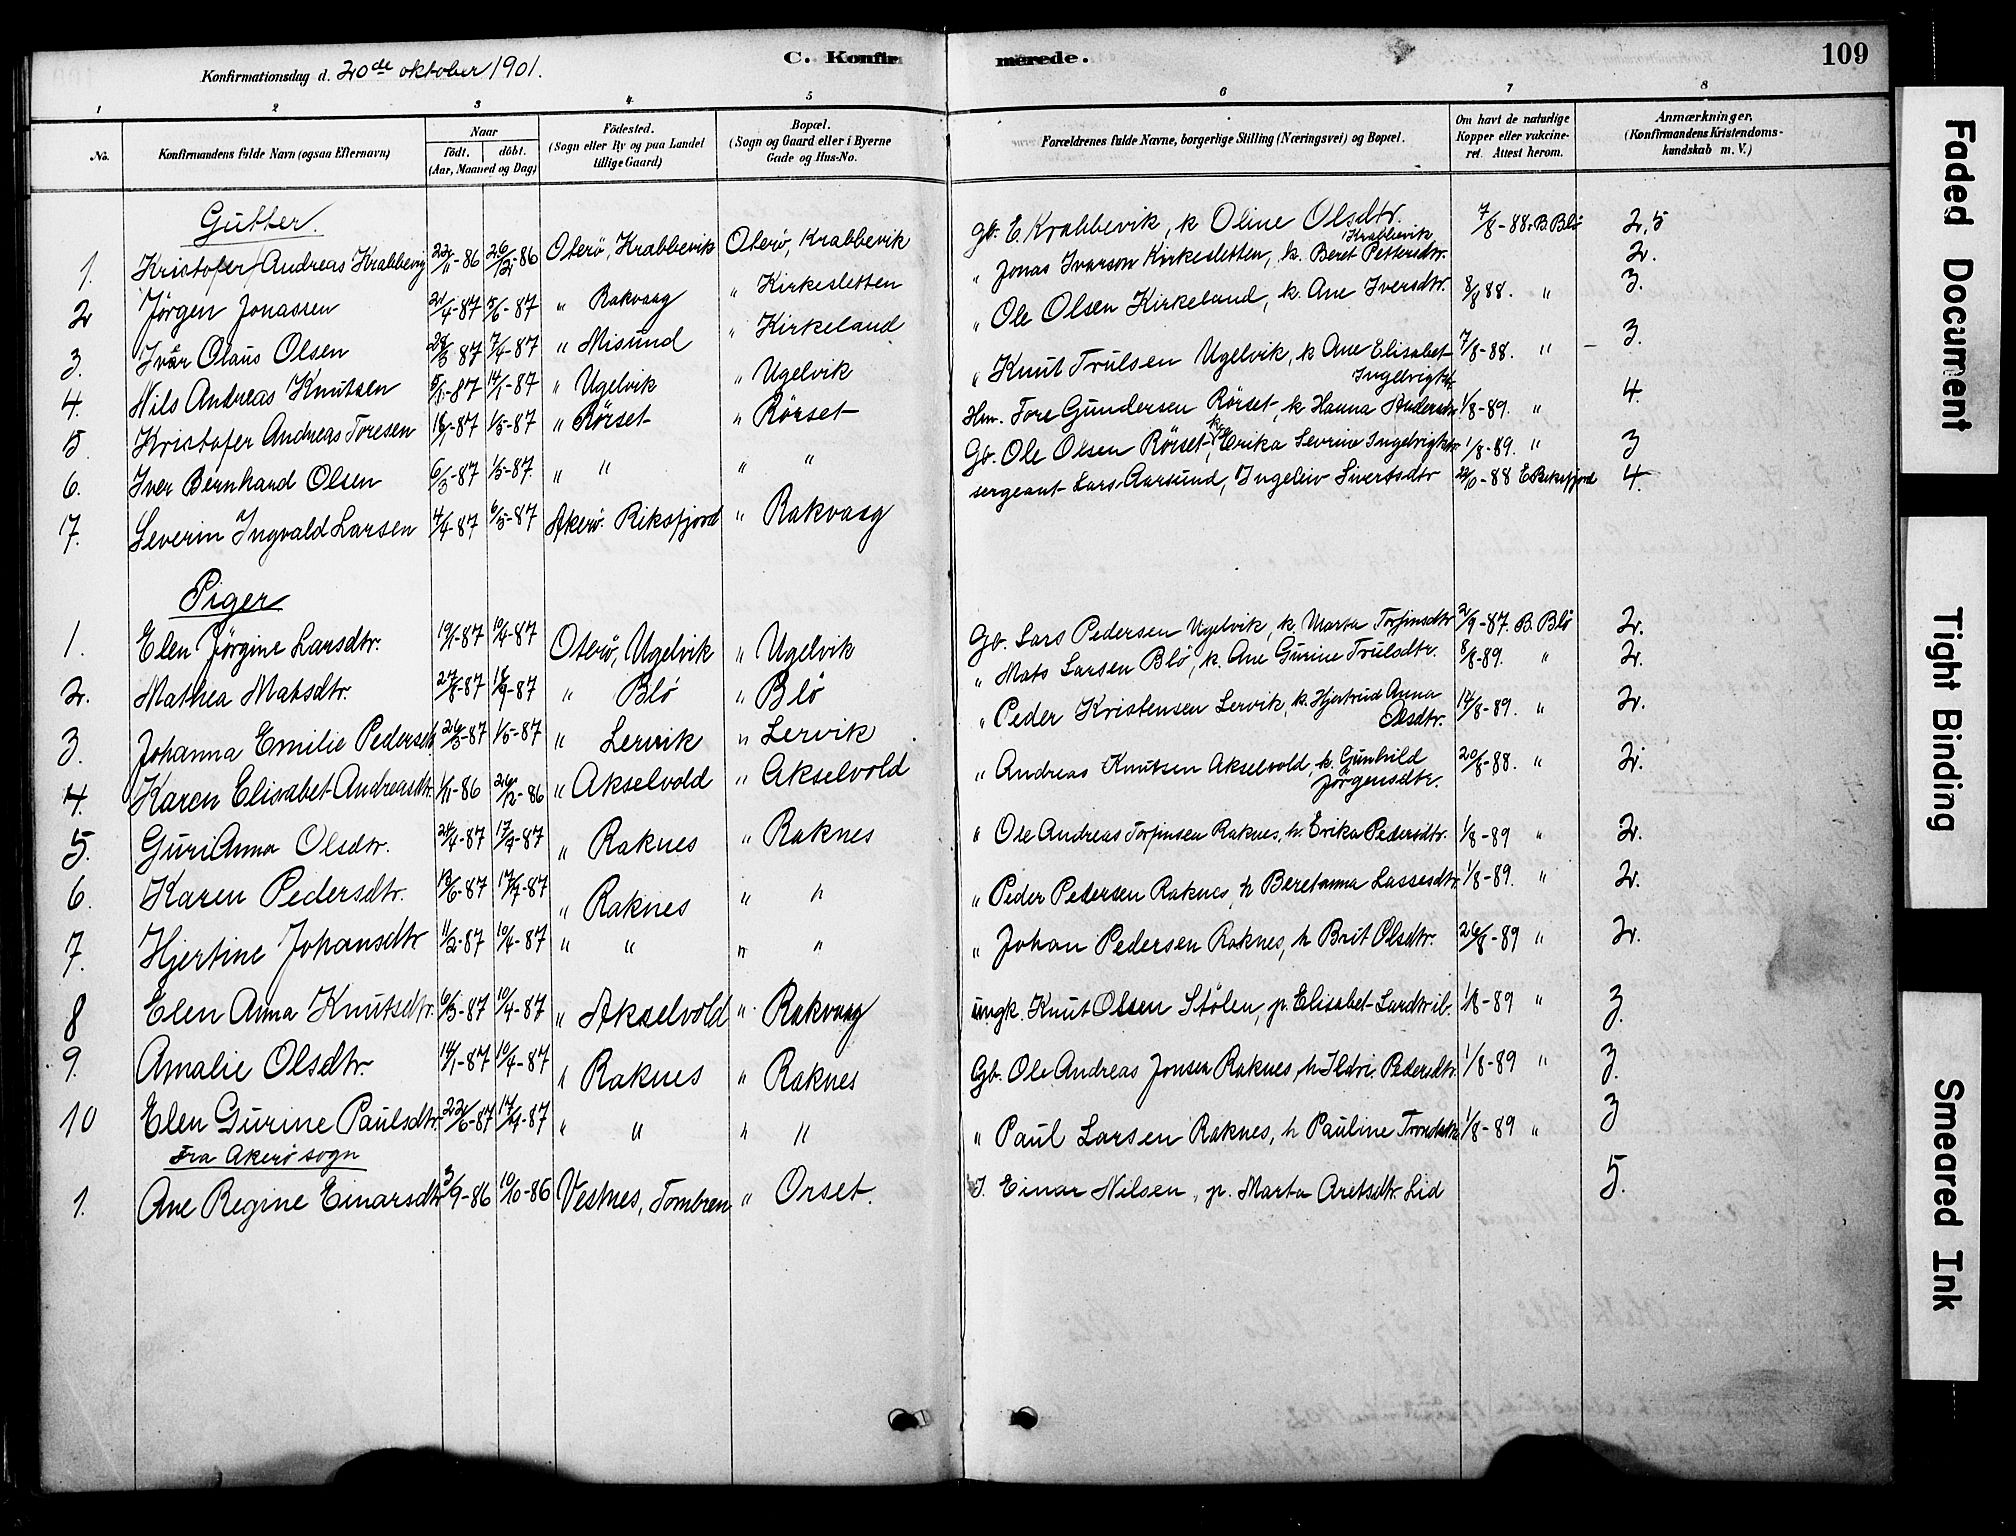 Konfirmationsdag d. 20de oktober 1901.
C. Konfirmerede.
109
1 2 3 4 5 6 7 8
No.
Konfirmandens fulde Navn (ogsaa Efternavn)
Naar
födt. döbt.
(Aar, Maaned og Dag)
Födested.
(Sogn eller By og paa Landet
tillige Gaard)
Bopæl.
(Sogn og Gaard eller i Byerne
Gade og Hus-No.
Forældrenes fulde Navne, borgerlige Stilling (Næringsvei) og Bopæl.
Om havt de naturlige
Kopper eller vakcine-
ret. Attest herom.
Anmærkninger,
(Konfirmandens Kristendoms-
kundskab m. V.)
Gutter.
1. Kristofer Andreas Krabbevig 22/11-86 26/12-86 Oterö, Krabbevik Oterö, Krabbevik Gb. E. Krabbevik, k Oline Olsdtr. Krabbevik 7/8-88. B. Blö 2,5
2 Jörgen Jonassen 21/4-87 5/6-87 " Rakvaag " Kirkesletten " Jonas Ivarson Kirkesletten, k. Beret Pettersdtr. 2.
3. Ivar Olaus Olsen 28/3-87 7/4-87 " Misund " Kirkeland " Ole Olsen Kirkeland, k. Ane Iversdtr. 8/8 88. " 3.
4. Nils Andreas Knutsen 5/1-87 14/1-87 " Ugelvik " Ugelvik " Knut Trulsen Ugelvik, k Ane Elisabet Ingebrigtsd. 7/8-88. " 3.
5. Kristofer Andreas Toresen 16/1-87 1/5-87 " Rörset " Rörset Hm. Tore Gundersen Rörset, k Hanna Andersdtr 1/8-89. " 4.
6. Iver Bernhard Olsen 6/3-87 1/5-87. " " " " Gb. Ole Olsen Rörset, k Erika Sevrine Ingebrigtsdtr. 1/8-89. " 3
7. Severin Ingvald Larsen 4/4-87 6/5-87 Akerö. Riksfjord " Rakvaag sergeant Lars Aarsund, Ingeleiv Sivertsdtr -88 4.
Piger
1. Elen Jörgine Larsdtr. 19/1-87 10/4-87 Oterö, Ugelvik " Ugelvik Gb. Lars Pedersen Ugelvik, k. Marta Torfinsdtr 2/9-87. B. Blö 2.
2. Mathea Matsdtr. 27/8-87 -87 " Blö " Blö " Mats Larsen Blö, k. Ane Gurine Trulsdtr. 8/8-89. " 2.
3. Johanna Emilie Pedersdt. 26/3-87 1/5-87 " Lervik " Lervik " Peder Kristensen Lervik, k. Hjertrud Anna Olsdtr. 14/8-89. " 2.
4. Karen Elisabet Andreasdtr. 1/11-86 26/12-86 " Akselvold " Akselvold " Andreas Knutsen Akselvold, k. Gunhild Jörgensdtr. 20/8-88. " 2.
5. Guri Anna Olsdtr. 24/4-87 17/7-87 " Raknes " Raknes " Ole Andreas Torfinsen Raknes, h. Erika Pedersdtr. 1/8-89 " 2.
6. Karen Pedersdtr. 13/6-87 17/7-87 " Raknes " " " Peder Pedersen Raknes, h Beretanna Lassesdtr. 1/8-89. " 2.
7. Hjertine Johansdtr 11/2-87 10/4-87 " " " " " Johan Pedersen Raknes, h Brit Olsdtr. 26/8-89 " 2.
8 Elen Anna Knutsdtr. 6/3-87 10/4-87 " Akselvold " Rakvaag ungk. Knut Olsen Stölen, p. Elisabet 1/8-89 " 3.
9. Amalie Olsdtr. 14/1-87 10/4-87 " Raknes " Raknes Gb. Ole Andreas Jonsen Raknes, h Ildri Pedersdtr. 1/8-89 " 3.
10 Elen Gurine Paulsdtr. 22/6-87 17/7-87 " " " " " Paul Larsen Raknes, h Pauline 1/8-89 " 3
Fra Akerö sogn
1. Ane Regine Einarsdtr 3/9-86 10/10-86 Vestnes, Tombren " Orset. I. Einar Nilsen, p. Marta Aretsdtr. Lid 5.
Faded Document
Tight Binding
Smeared Ink